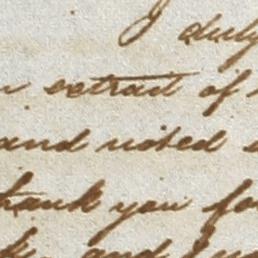 I duly
extract of
and noted
thank you for
and